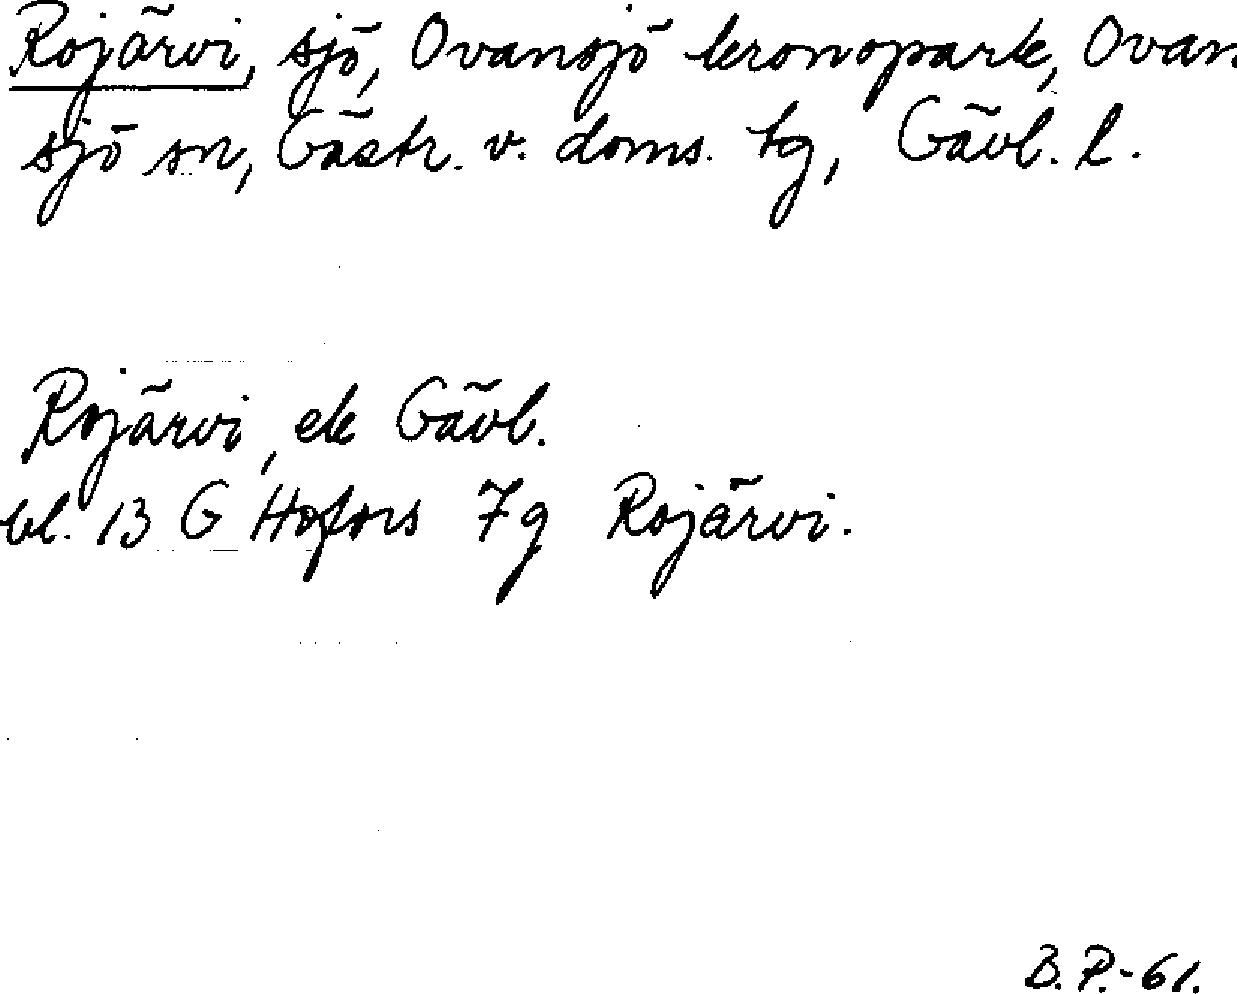 Rojärvi, sjö, Ovansjö kronopark, Ovan-
sjö sn, Gästr. v. doms. tg, Gävl. l.
Rojärvi, ek Gävl.
bl. 13 G Hofors 7g Rojärvi.
B.P.-61.